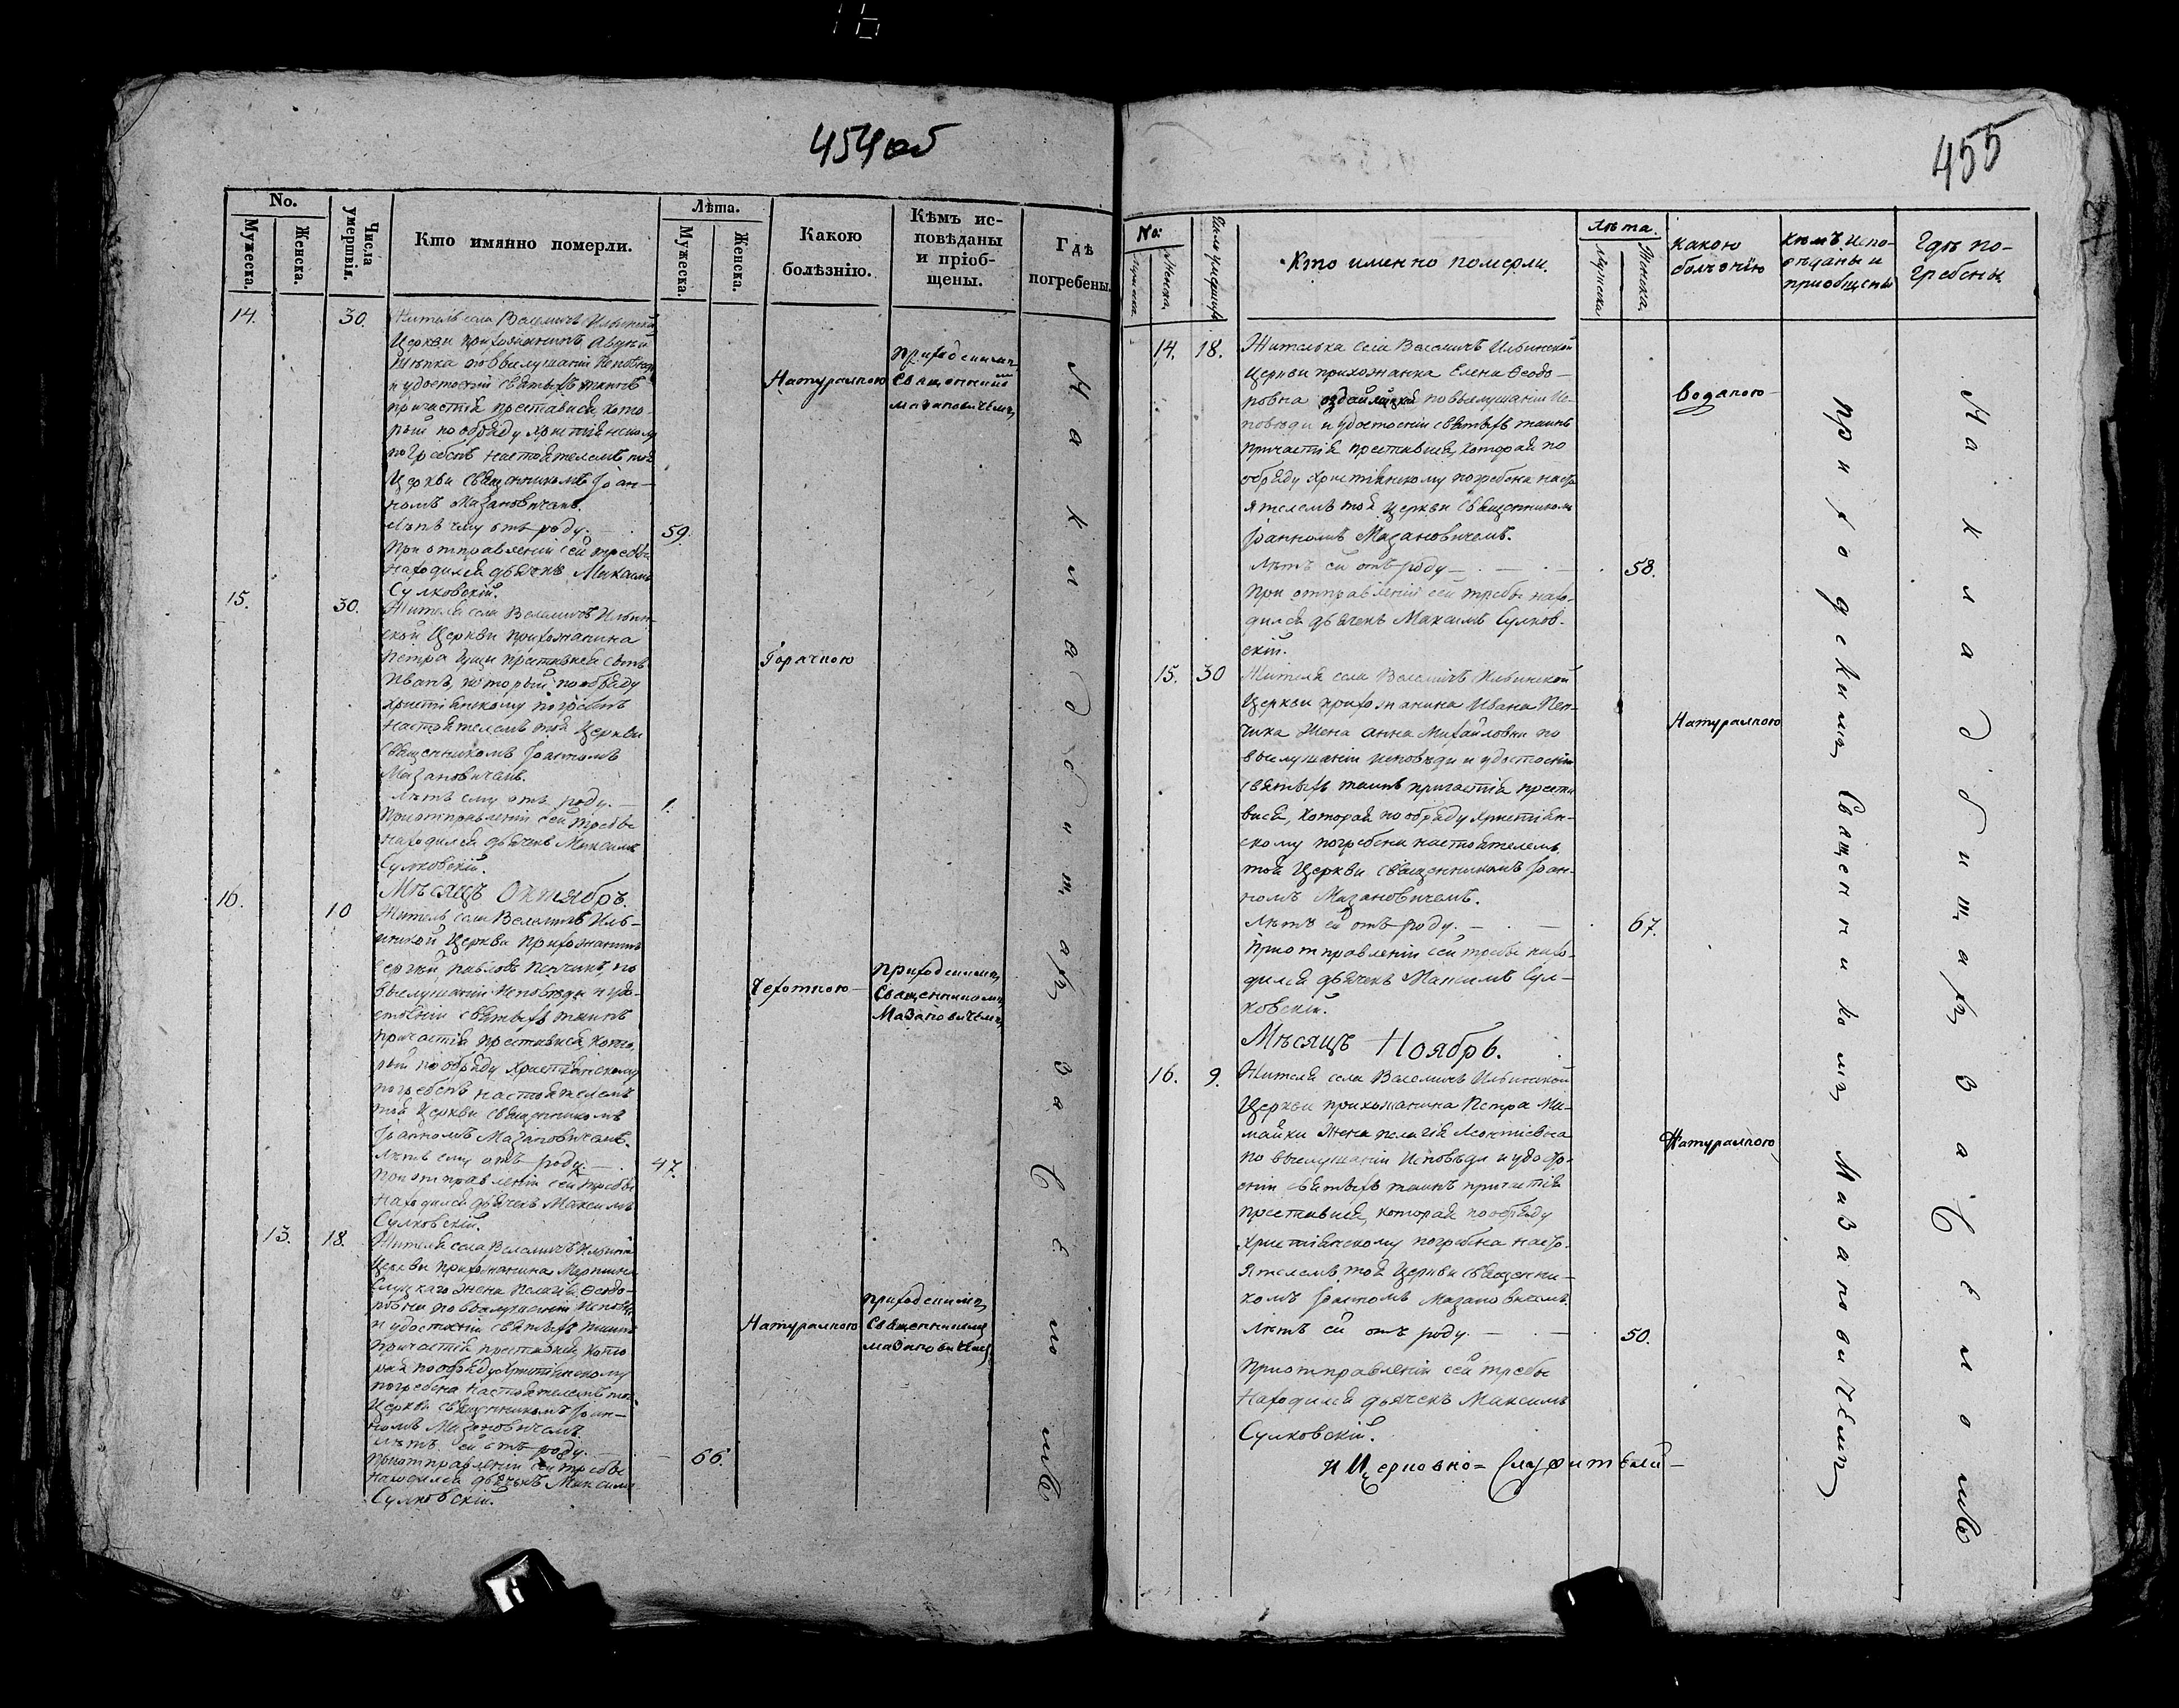 454 об
No.
Мужеска.
Женска.
Числа умершвія.
Кто имянно померли.
Лѣта.
Мужеска.
Женска.
Какою болѣзнію.
Кѣмъ ис-
повѣданы
и пріоб-
щены.
Гдѣ
погребены.
14. 30. Житель села Велемичъ Ильинской
Церкви прихожанинъ
по выслушаніи Исповѣди
и удостоеніи святыхъ таинъ
причастія преставися, кото-
рый по обряду христіянскому
погребенъ настоятелемъ той
Церкви Священникомъ Іоан-
номъ Мазановичемъ.
Лѣтъ ему отъ роду. — 59.
При отправленіи сей требы
находился дьячекъ Максимъ
Сулковскій.
Натуралною
Приходскимъ
Священникомъ
Мазановичемъ
15. 30. Жителя села Велемичъ Ильин-
ской Церкви прихожанина
Петра преставися сынъ
Иванъ, который по обряду
христіянскому погребенъ
настоятелемъ той Церкви
Священникомъ Іоанномъ
Мазановичемъ.
Лѣтъ ему отъ роду. — 1.
При отправленіи сей требы
находился дьячекъ Максимъ
Сулковскій.
Горячкою
Мѣсяцъ Октябрь.
16. 10 Житель села Велемичъ Иль-
инской Церкви прихожанинъ
Сергѣй Павловъ Пепчикъ, по
выслушаніи Исповѣди и удо-
стоеніи святыхъ таинъ
причастія преставися, кото-
рый по обряду христіянскому
погребенъ настоятелемъ
той Церкви священникомъ
Іоанномъ Мазановичемъ.
Лѣтъ ему отъ роду. — 47.
При отправленіи сей требы
находился дьячекъ Максимъ
Сулковскій.
Чехоткою —
Приходскимъ
Священникомъ
Мазановичемъ
13. 18. Жителя села Велемичъ Ильинской
Церкви прихожанина Мартина
Слуцкаго жена Пелагія Ѳеодо-
ровна по выслушаніи Исповѣди
и удостоеніи святыхъ таинъ
причастія преставися, кото
рая по обряду Христіянскому
погребена настоятелемъ той
Церкви священникомъ Іоан-
номъ Мазановичемъ.
Лѣтъ ей отъ роду. — 66.
При отправленіи сей требы
находился дьячекъ Максимъ
Сулковскій.
Натуралною
Приходскимъ
Священникомъ
Мазановичемъ
На кладбищахъ за Селомъ
455
No:
Женска.
Кто именно померли.
Лѣта.
Мужеска
Женска.
Какою
болѣзнію
Кѣмъ испо-
вѣданы и
приобщены
Гдѣ по-
гребены.
14. 18. Жителька села Велемичъ Ильинской
Церкви прихожанка Елена Ѳеодо-
ровна по выслушаніи Ис-
повѣди и удостоеніи святыхъ таинъ
причастія преставися, которая по
обряду христіянскому погребена насто
ятелемъ той Церкви Священникомъ
Іоанномъ Мазановичемъ.
Лѣтъ ей отъ роду — 58.
При отправленіи сей требы нахо-
дился дьячекъ Максимъ Сулков-
скій.
Водяною —
15. 30 Жителя села Велемичъ Ильинской
Церкви прихожанина Ивана Пеп-
чика жена Анна Михайловна по
выслушаніи исповѣди и удостоеніи
святыхъ таинъ причастія преста
вися, которая по обряду христіян-
скому погребена настоятелемъ
той Церкви священникомъ Іоан-
номъ Мазановичемъ.
Лѣтъ ей отъ роду. — 67.
При отправленіи сей требы нахо-
дился дьячекъ Максимъ Сул-
ковскій.
Натуралною
Мѣсяцъ Ноябрь.
16. 9. Жителя села Велемичъ Ильинской
Церкви прихожанина Петра Ми-
майки жена Пелагія Леонтіевна
по выслушаніи Исповѣди и удосто-
еніи святыхъ таинъ причастія
преставися, которая по обряду
христіянскому погребена насто-
ятелемъ той Церкви священни-
комъ Іоанномъ Мазановичемъ.
Лѣтъ ей отъ роду. — 50.
При отправленіи сей требы
находился дьячекъ Максимъ
Сулковскій.
Натуралною
и Церковно= Служителей —
Приходскимъ Священникомъ Мазановичемъ
На кладбищахъ за Селомъ